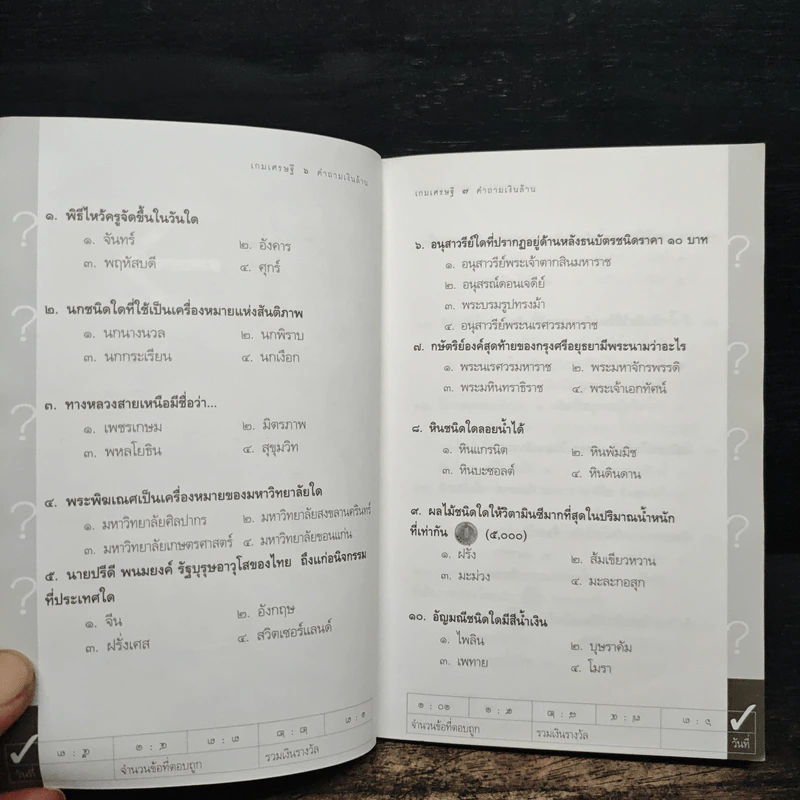 เกมเศรษฐี ๖ คำถามเงินล้าน
๑. พิธีไหว้ครูจัดขึ้นในวันใด
๑. จันทร์ ๒. อังคาร
๓. พฤหัสบดี ๔. ศุกร์
๒. นกชนิดใดที่ใช้เป็นเครื่องหมายแห่งสันติภาพ
๑. นกนางนวล ๒. นกพิราบ
๓. นกกระเรียน ๔. นกเงือก
๓. ทางหลวงสายเหนือมีชื่อว่า...
๑. เพชรเกษม ๒. มิตรภาพ
๓. พหลโยธิน ๔. สุขุมวิท
๔. พระพิฆเณศเป็นเครื่องหมายของมหาวิทยาลัยใด
๑. มหาวิทยาลัยศิลปากร ๒. มหาวิทยาลัยสงขลานครินทร์
๓. มหาวิทยาลัยเกษตรศาสตร์ ๔. มหาวิทยาลัยขอนแก่น
๕. นายปรีดี พนมยงค์ รัฐบุรุษอาวุโสของไทย ถึงแก่อนิจกรรม
ที่ประเทศใด
๑. จีน ๒. อังกฤษ
๓. ฝรั่งเศส ๔. สวิตเซอร์แลนด์
จำนวนข้อที่ตอบถูก รวมเงินรางวัล
วันที่
เกมเศรษฐี ๗ คำถามเงินล้าน
๖. อนุสาวรีย์ใดที่ปรากฏอยู่ด้านหลังธนบัตรชนิดราคา ๑๐ บาท
๑. อนุสาวรีย์พระเจ้าตากสินมหาราช
๒. อนุสรณ์ดอนเจดีย์
๓. พระบรมรูปทรงม้า
๔. อนุสาวรีย์พระนเรศวรมหาราช
๗. กษัตริย์องค์สุดท้ายของกรุงศรีอยุธยามีพระนามว่าอะไร
๑. พระนเรศวรมหาราช ๒. พระมหาจักรพรรดิ
๓. พระมหินทราธิราช ๔. พระเจ้าเอกทัศน์
๘. หินชนิดใดลอยน้ำได้
๑. หินแกรนิต ๒. หินพัมมิช
๓. หินบะซอลต์ ๔. หินดินดาน
๙. ผลไม้ชนิดใดให้วิตามินซีมากที่สุดในปริมาณน้ำหนัก
ที่เท่ากัน (๕,๐๐๐)
๑. ฝรั่ง ๒. ส้มเขียวหวาน
๓. มะม่วง ๔. มะละกอสุก
๑๐. อัญมณีชนิดใดมีสีน้ำเงิน
๑. ไพลิน ๒. บุษราคัม
๓. เพทาย ๔. โมรา
จำนวนข้อที่ตอบถูก รวมเงินรางวัล
วันที่